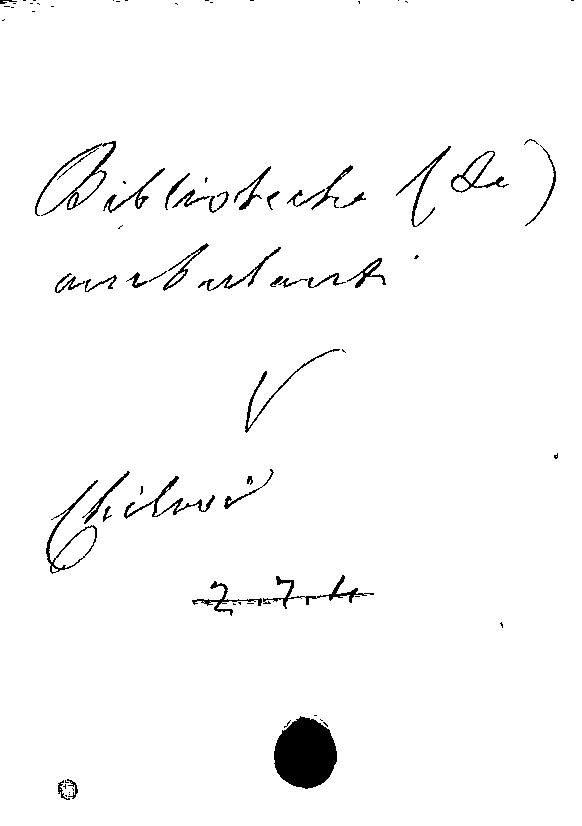 Biblioteche (Le)
ambulanti
V
Chilovi
2.7.4